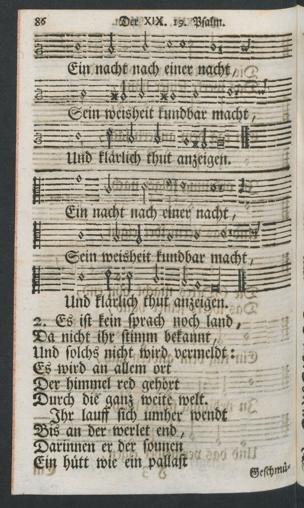 86 Der XIX. 19. Psalm.
Ein nacht nach einer nacht,
Sein weisheit kundbar macht,
Und klärlich thut anzeigen.
Ein nacht nach einer nacht,
Sein weisheit kundbar macht,
Und klärlich thut anzeigen.
2. Es ist kein sprach noch land,
Da nicht ihr stimm bekannt,
Und solchs nicht wird vermeldt:
Es wird an allem ort
Der himmel red gehört
Durch die ganz weite welt.
Ihr lauff sich umher wendt
Bis an der werlet end,
Darinnen er der sonnen
Ein hütt wie ein pallast
Geschmü-